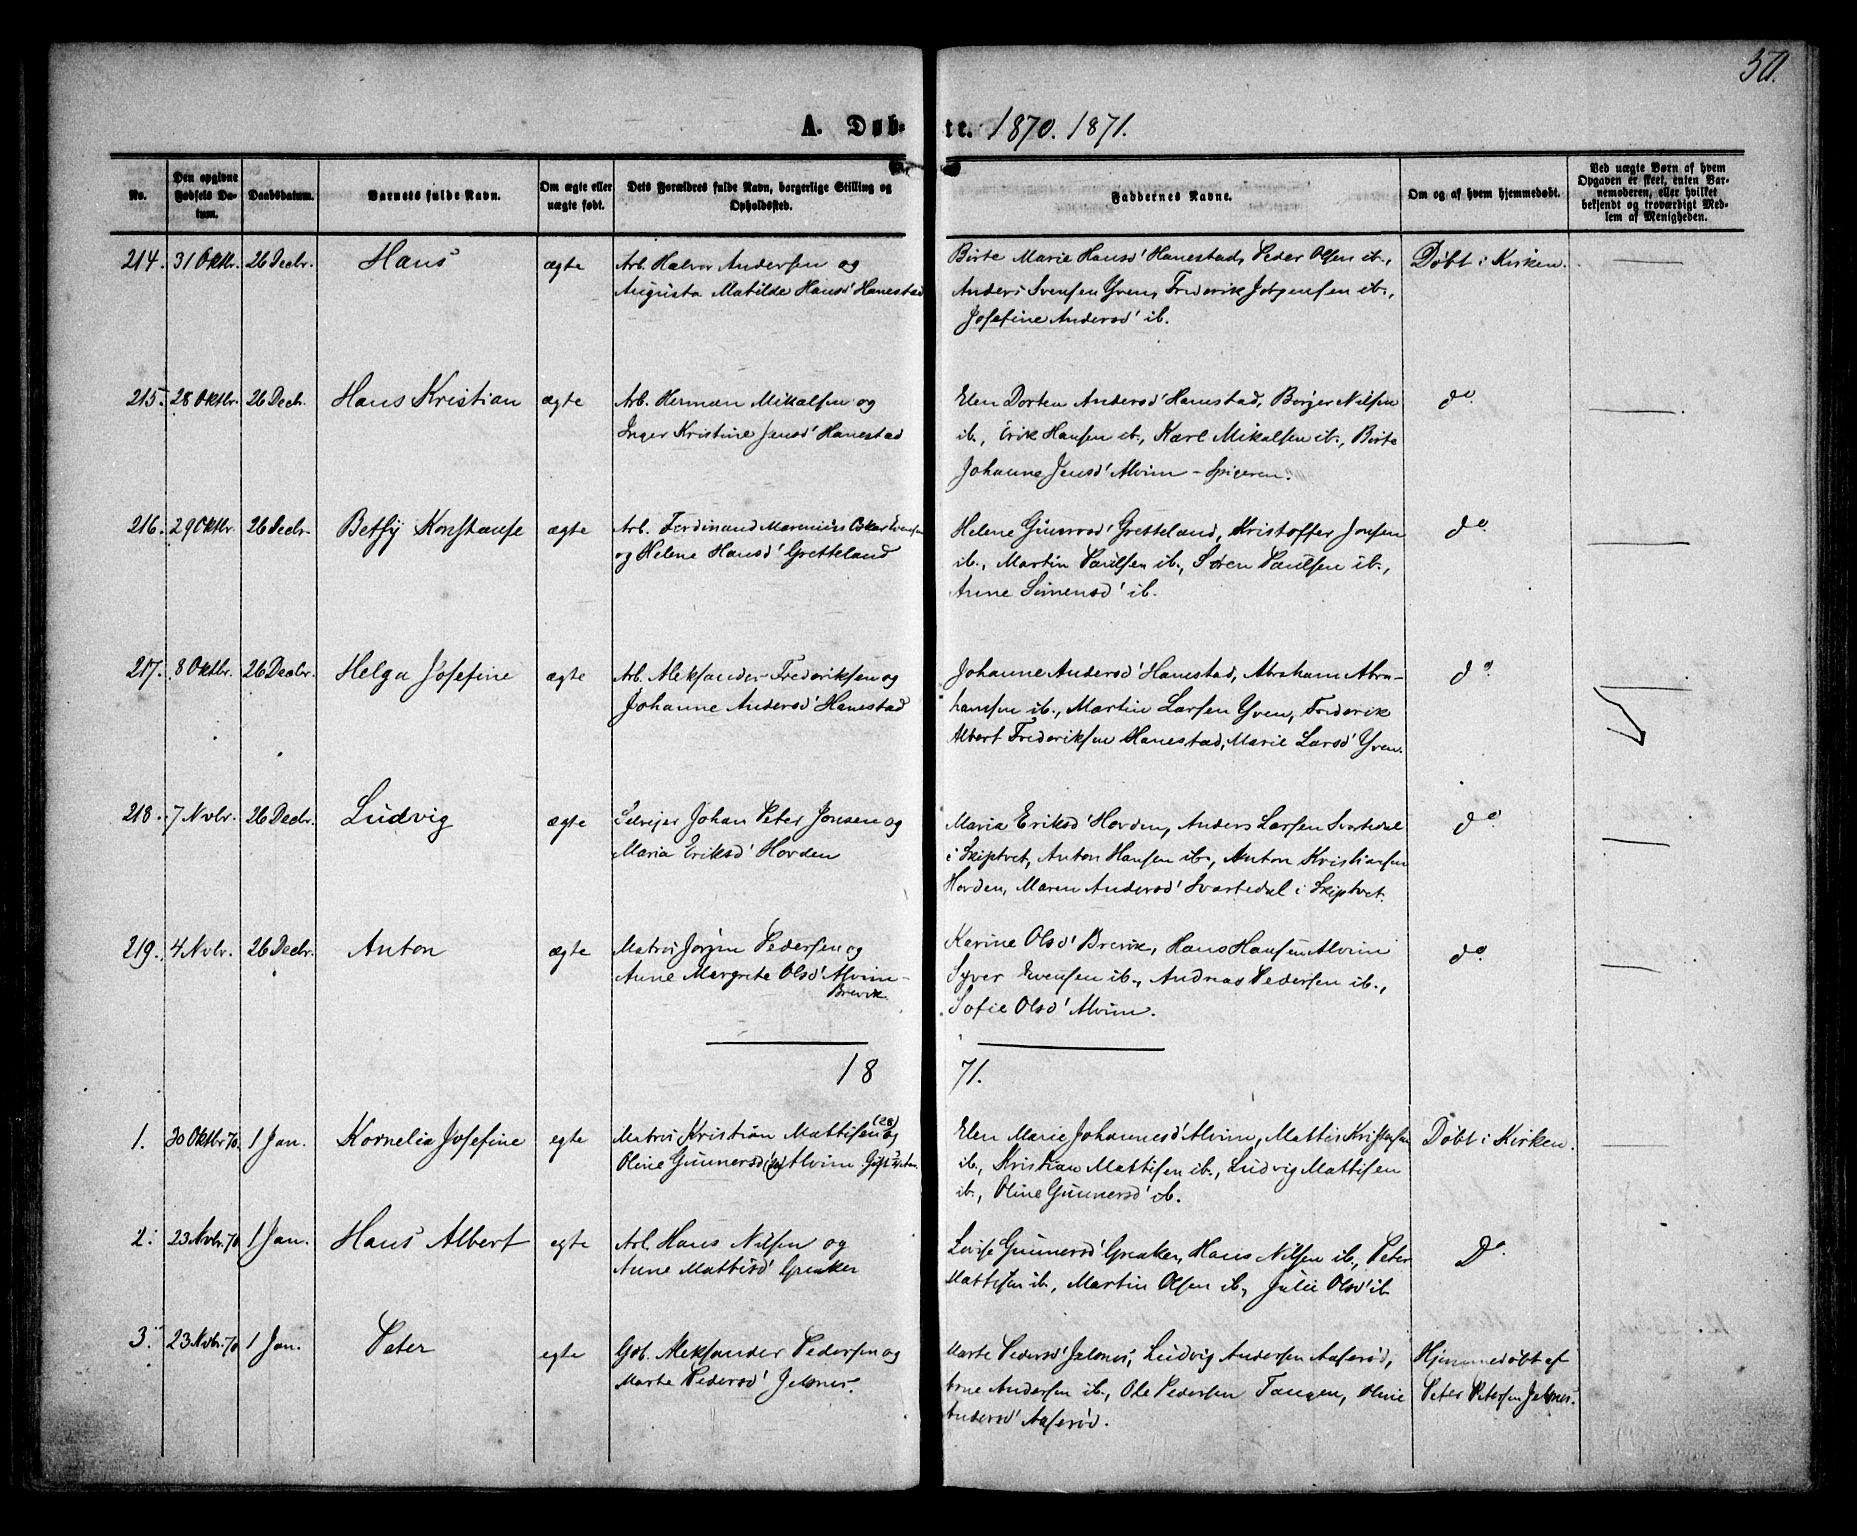 50.
A. Døbte. 1870. 1871.
No.
Den opgivne Fødsels Datum.
Daabsdatum.
Barnets fulde Navn.
Om ægte eller uægte født.
Dets Forældres fulde Navn, borgerlige Stilling og Opholdssted.
Faddernes Navne.
Om og af hvem hjemmedøbt.
Ved uægte Børn af hvem Opgaven er skeet, enten Barnemoderen, eller hvilket bekjendt og troværdigt Medlem af Menigheden.
214. 31 Oktbr. 26 Decbr. Hans ægte Arb. Halvor Andersen og
Augusta Matilde Hansd' Hanestad
Birte Marie Hansd' Hanestad, Peder Olsen ib.,
Anders Svensen Yven, Frederik Jørgensen ib.,
Josefine Andersd' ib.
Døbt i Kirken.
215. 28 Oktbr. 26 Decb. Hans Kristian ægte Arb. Herman Mikalsen og
Inger Kristine Jensd' Hanestad
Elen Dortea Andersd' Hanestad, Børger Nilsen
ib., Erik Hansen ib., Karl Mikalsen ib., Birte
Johanne Jensd' Alvim - Spigeren.
do.
216. 29 Oktbr. 26 Decbr. Betsy Konstanse ægte Arb. Ferdinand Marenius Oskar Evensen
og Helene Hansd' Gretteland
Helene Gunersd' Gretteland, Kristoffer Jonsen
ib., Martin Paulsen ib., Søren Paulsen ib.,
Anne Simensd' ib.
do.
217. 8 Oktbr. 26 Decbr. Helga Josefine ægte Arb. Aleksander Frederiksen og
Johanne Andersd' Hanestad
Johanne Andersd' Hanestad, Abraham Abra-
hamsen ib., Martin Larsen Yven, Frederik
Albert Frederiksen Hanestad, Marie Larsd' Yven.
do.
218. 7 Nvbr. 26 Decbr. Ludvig ægte Selvejer Johan Peter Jonsen og
Maria Eriksd' Hovden
Maria Eriksd' Hovden, Anders Larsen Svartedal
i Skiptvet, Anton Hansen ib., Anton Kristiansen
Hovden, Maren Andersd' Svartedal i Skiptvet.
do.
219. 4 Nvbr. 26 Decbr. Anton ægte Matros Jørgen Pedersen og
Anne Margrete Olsd' Alvim-
Brevik.
Karine Olsd' Brevik, Hans Hansen Alvim
Syver Evensen ib., Andreas Pedersen ib.,
Sofie Olsd' Alvim.
do.
1871.
1. 30 Oktbr 70. 1 Jan. Kornelia Josefine egte Matros Kristian Mattisen (28) og
Oline Gunnersd' Alvim
Elen Marie Johannesd' Alvim, Mattis Kristensen
ib., Kristian Mattisen ib., Ludvig Mattisen
ib., Oline Gunnersd' ib.
Døbt i Kirken.
2. 23 Nvbr. 70 1 Jan. Hans Albert egte Arb. Hans Nilsen og
Anne Mattisd' Greaker
Lovise Gunnersd' Greaker, Hans Nilsen ib., Peter
Mattisen ib., Martin Olsen ib., Julie Olsd' ib
Do.
3. 23 Nvbr. 70 1 Jan. Peter egte Gbb. Aleksander Pedersen og
Marte Pedersd' Jelsnes.
Marte Pedersd' Jelsnes, Ludvig Andersen Aaserød,
Arne Andersen ib., Ole Pedersen Tangen, Oline
Andersd' Aaserød.
Hjemmedøbt af
Peter Petersen Jelsnes.